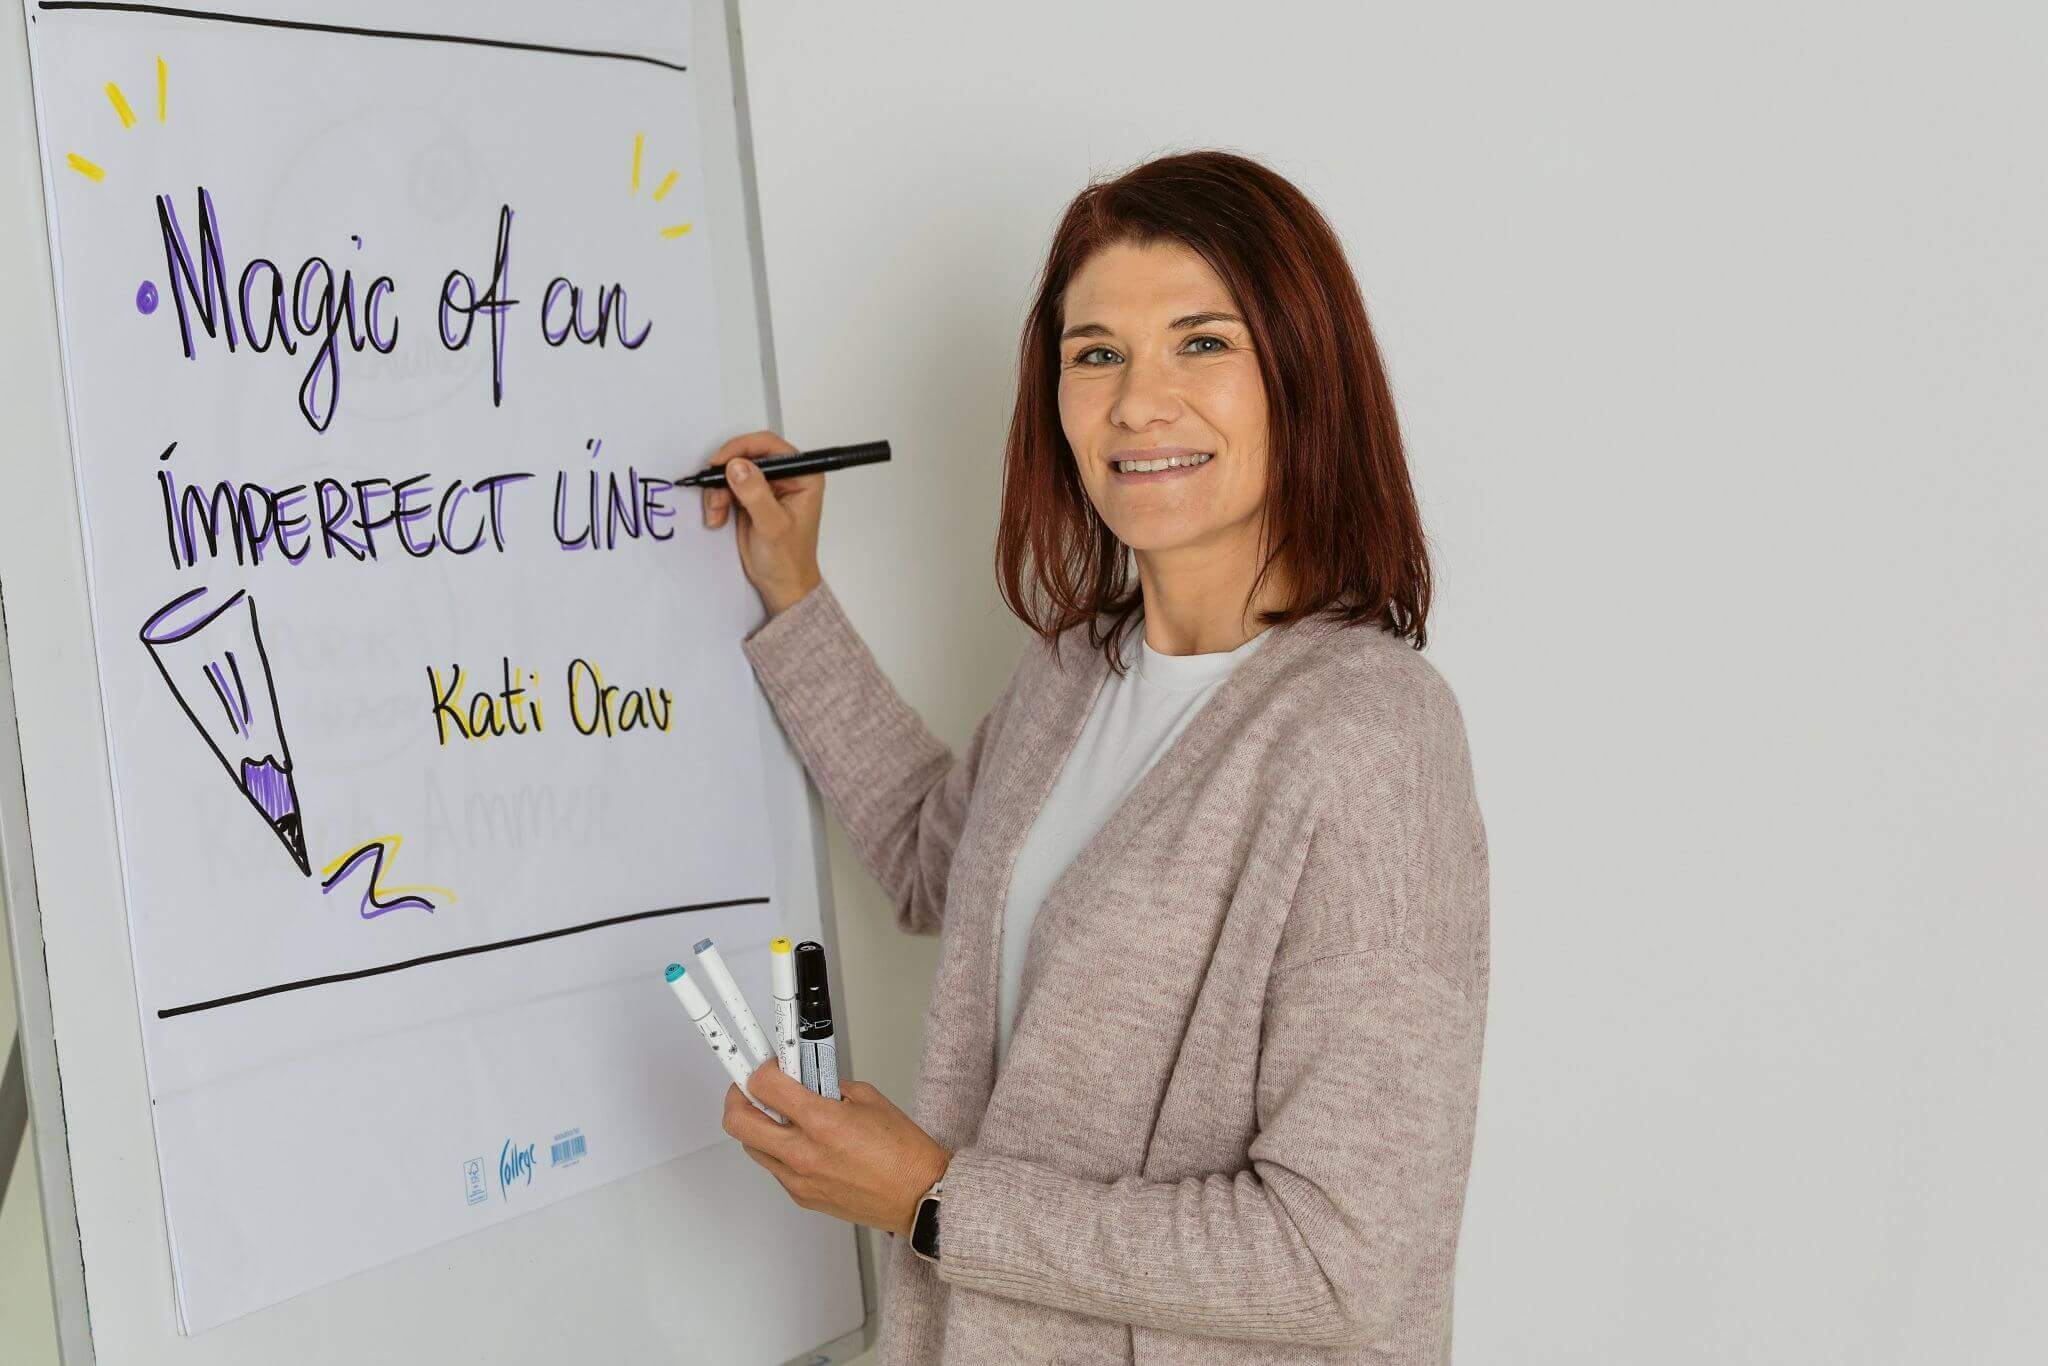 Magic of an
IMPERFECT LINE
Kati Orav
College